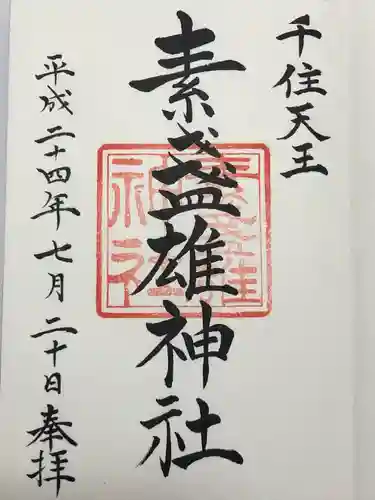 千住天王
素盞雄神社
平成二十四年七月二十日奉拝
素盞雄神社